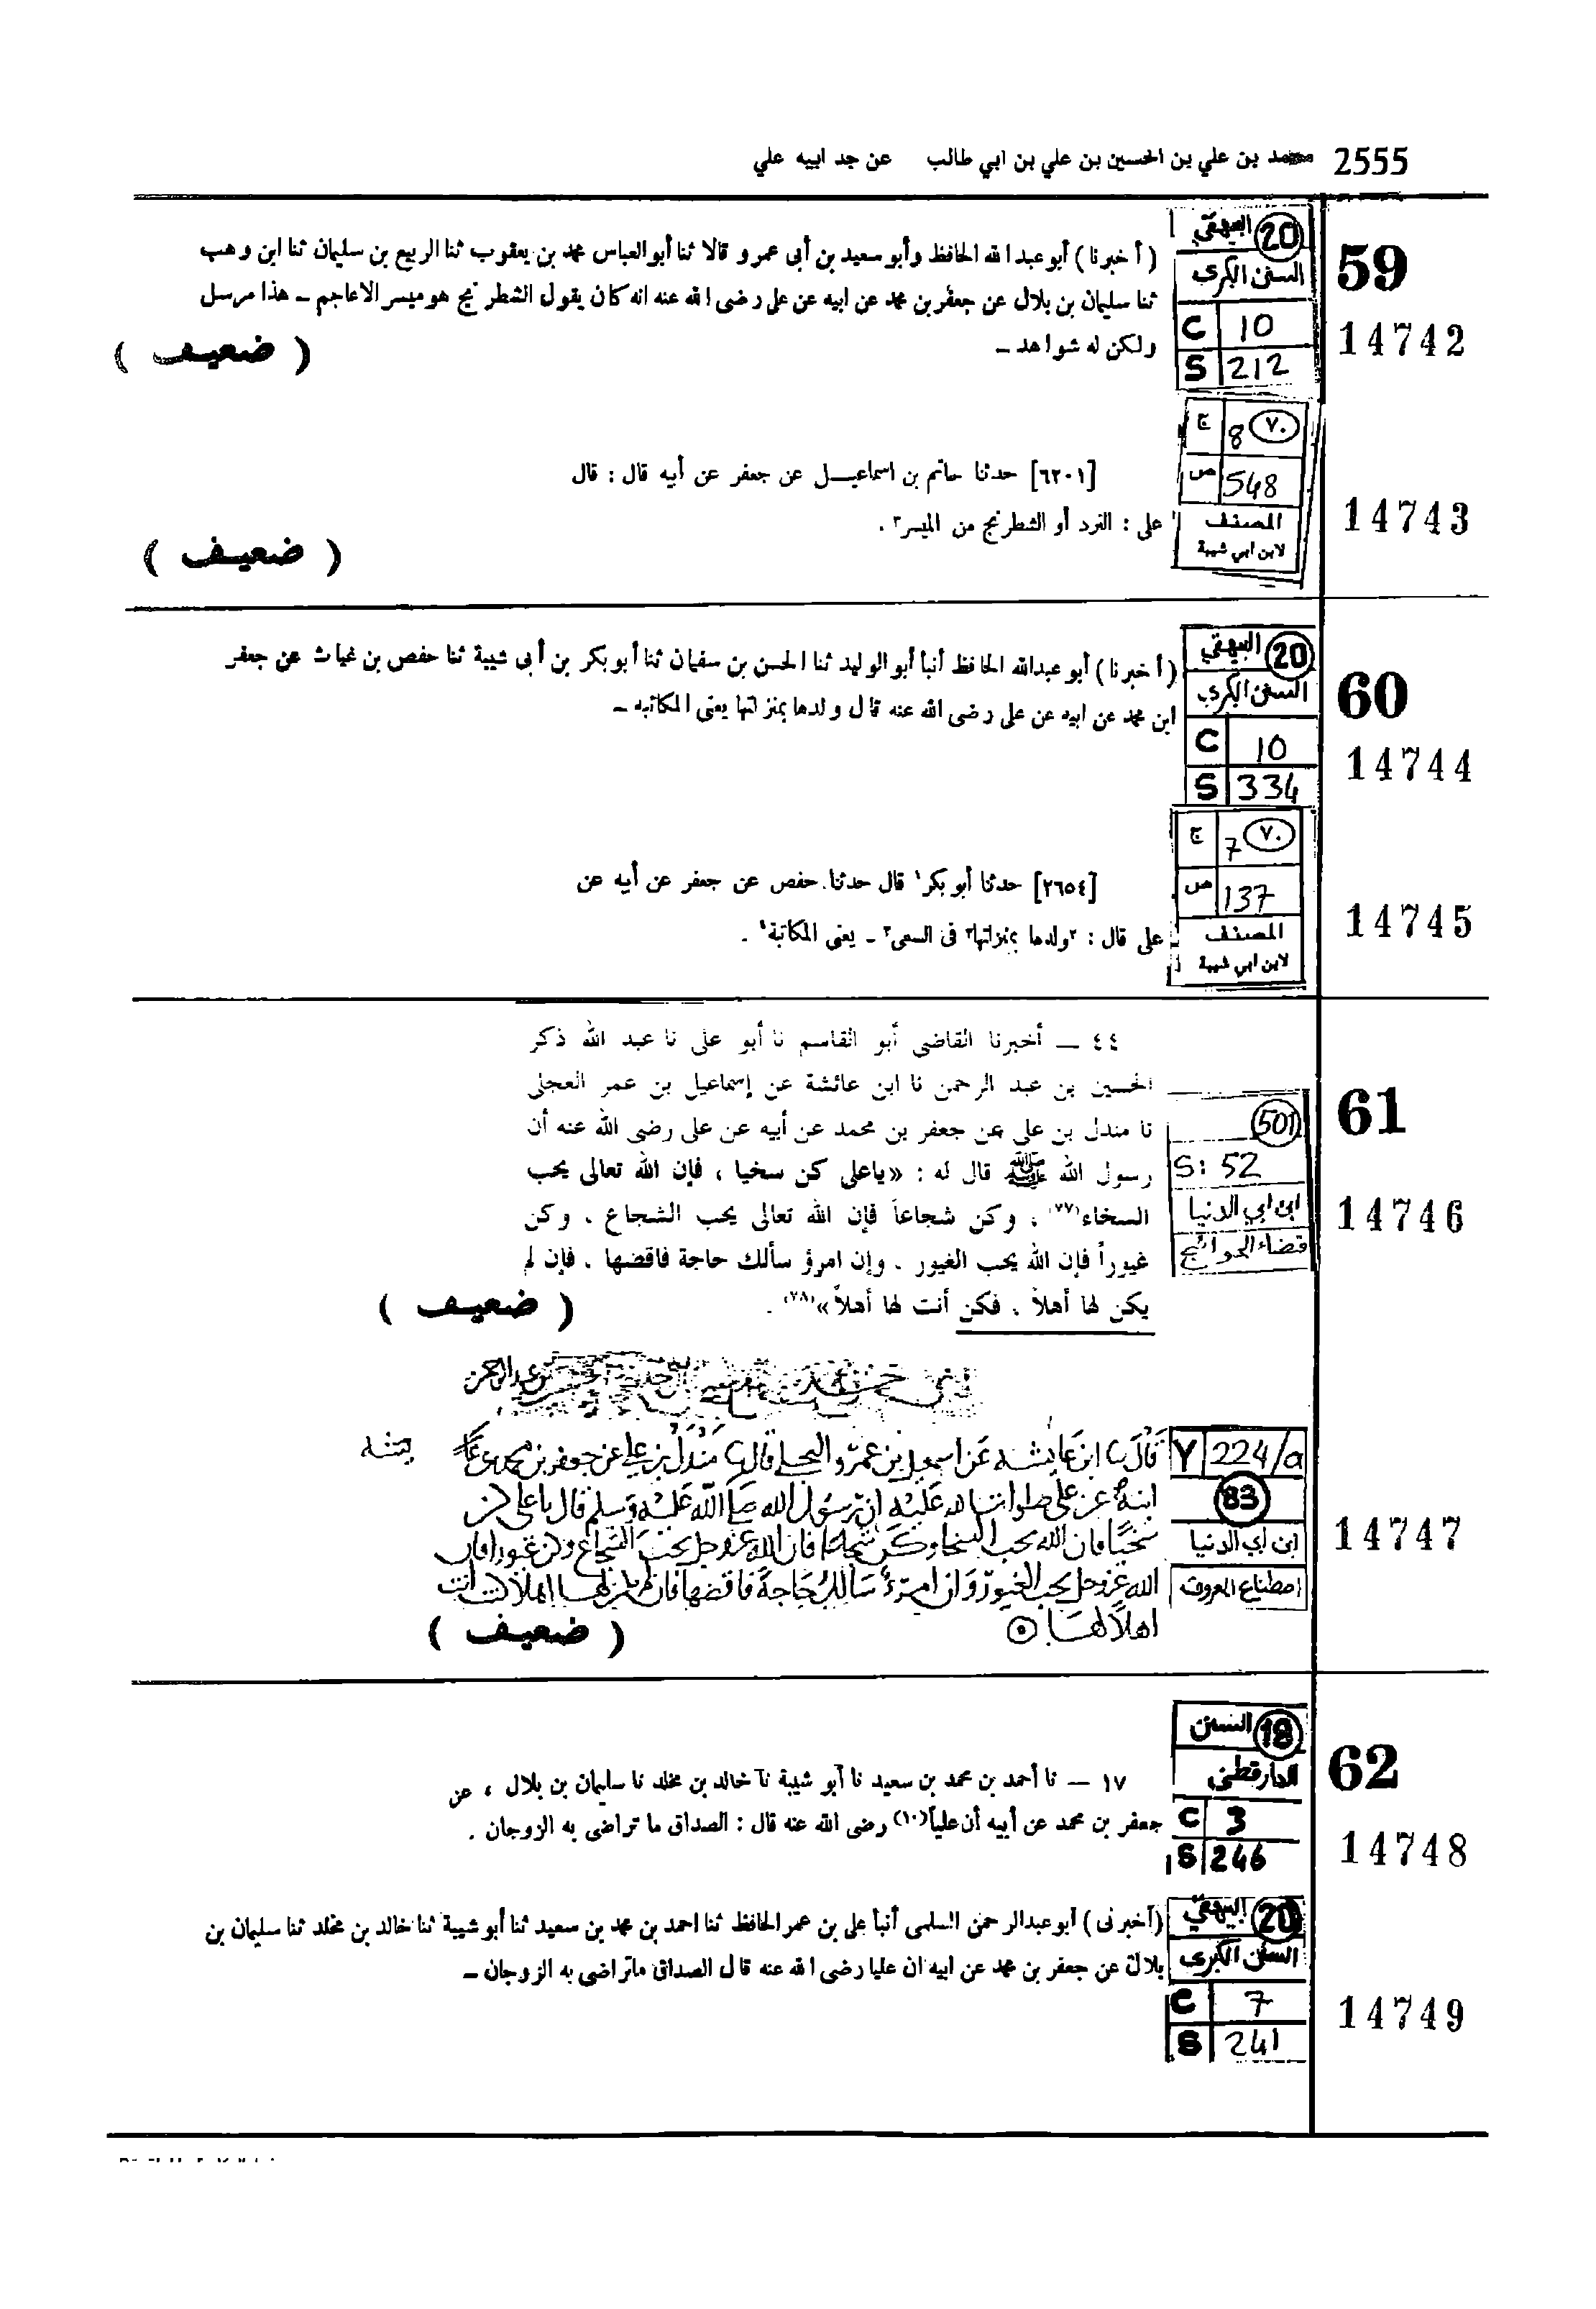 2555 محمد بن علي بن الحسين بن علي بن ابي طالب عن جد ابيه علي
59
14742
20 البيهقي
السنن الكبرى
C 10
S 212
(أخبرنا) أبو عبد الله الحافظ وأبو سعيد بن أبى عمرو قالا ثنا أبو العباس محمد بن يعقوب ثنا الربيع بن سليمان ثنا ابن وهب
ثنا سليمان بن بلال عن جعفر بن محمد عن ابيه عن على رضى الله عنه انه كان يقول الشطرنج هو ميسر الاعاجم ـ هذا مرسل
ولكن له شواهد ـ
( ضعيف )
14743
ج 8 ٧٠
ص 548
المصنف
لابن ابي شيبة
[٦٢٠١] حدثنا حاتم بن اسماعيل عن جعفر عن أبيه قال : قال
على : النرد أو الشطرنج من الميسر٣ .
( ضعيف )
60
14744
20 البيهقي
السنن الكبرى
C 10
S 334
(أخبرنا) أبو عبدالله الحافظ أنبأ أبو الوليد ثنا الحسن بن سفيان ثنا أبو بكر بن أبى شيبة ثنا حفص بن غياث عن جعفر
ابن محمد عن ابيه عن على رضى الله عنه قال ولدها بمنزلتها يعنى المكاتبه ـ
14745
ج 7 ٧٠
ص 137
المصنف
لابن ابي شيبة
[٢٦٥٤] حدثنا أبو بكر١ قال حدثنا حفص عن جعفر عن أبيه عن
على قال : ٢ولدها بمنزلتها٢ فى السعى٣ ـ يعنى المكاتبة٤ .
61
14746
501
S: 52
ابن ابي الدنيا
قضاء الحوائج
٤٤ ــ أخبرنا القاضى أبو القاسم نا أبو على نا عبد الله ذكر
الحسين بن عبد الرحمن نا ابن عائشة عن إسماعيل بن عمر العجلى
نا مندل بن على عن جعفر بن محمد عن أبيه عن على رضى الله عنه أن
رسول الله ﷺ قال له : «ياعلى كن سخيا ، فإن الله تعالى يحب
السخاء(٧٧) ، وكن شجاعاً فإن الله تعالى يحب الشجاع ، وكن
غيوراً فإن الله يحب الغيور ، وإن امرؤ سألك حاجة فاقضها ، فإن لم
يكن لها أهلاً ، فكن أنت لها أهلاً»(٧٨) .
( ضعيف )
14747
Y 224/a
83
ابن ابي الدنيا
اصطناع المعروف
قال ابن عايشه عن اسمعيل بن عمرو البجلي قال مندل بن علي عن جعفر بن محمد عن
ابيه عن على صلوات الله عليه ان رسول الله صلى الله عليه وسلم قال يا على كن
سخيا فان الله يحب السخا وكن شجاعا فان الله عز وجل يحب الشجاع وكن غيورا فان
الله عز وجل يحب الغيور وان امرؤ سالك حاجة فاقضها فان لم يكن لها اهلا كنت انت
اهلا لها
( ضعيف )
62
14748
18 السنن
الدارقطني
C 3
S 246
١٧ ــ نا أحمد بن محمد بن سعيد نا أبو شيبة نا خالد بن مخلد نا سليمان بن بلال ، عن
جعفر بن محمد عن أبيه أن علياً(١٠) رضى الله عنه قال : الصداق ما تراضى به الزوجان .
14749
20 البيهقي
السنن الكبرى
C 7
S 241
(أخبرنى) أبو عبد الرحمن السلمى أنبأ على بن عمر الحافظ ثنا احمد بن محمد بن سعيد ثنا أبو شيبة ثنا خالد بن مخلد ثنا سليمان بن
بلال عن جعفر بن محمد عن ابيه ان عليا رضى الله عنه قال الصداق ماتراضى به الزوجان ـ